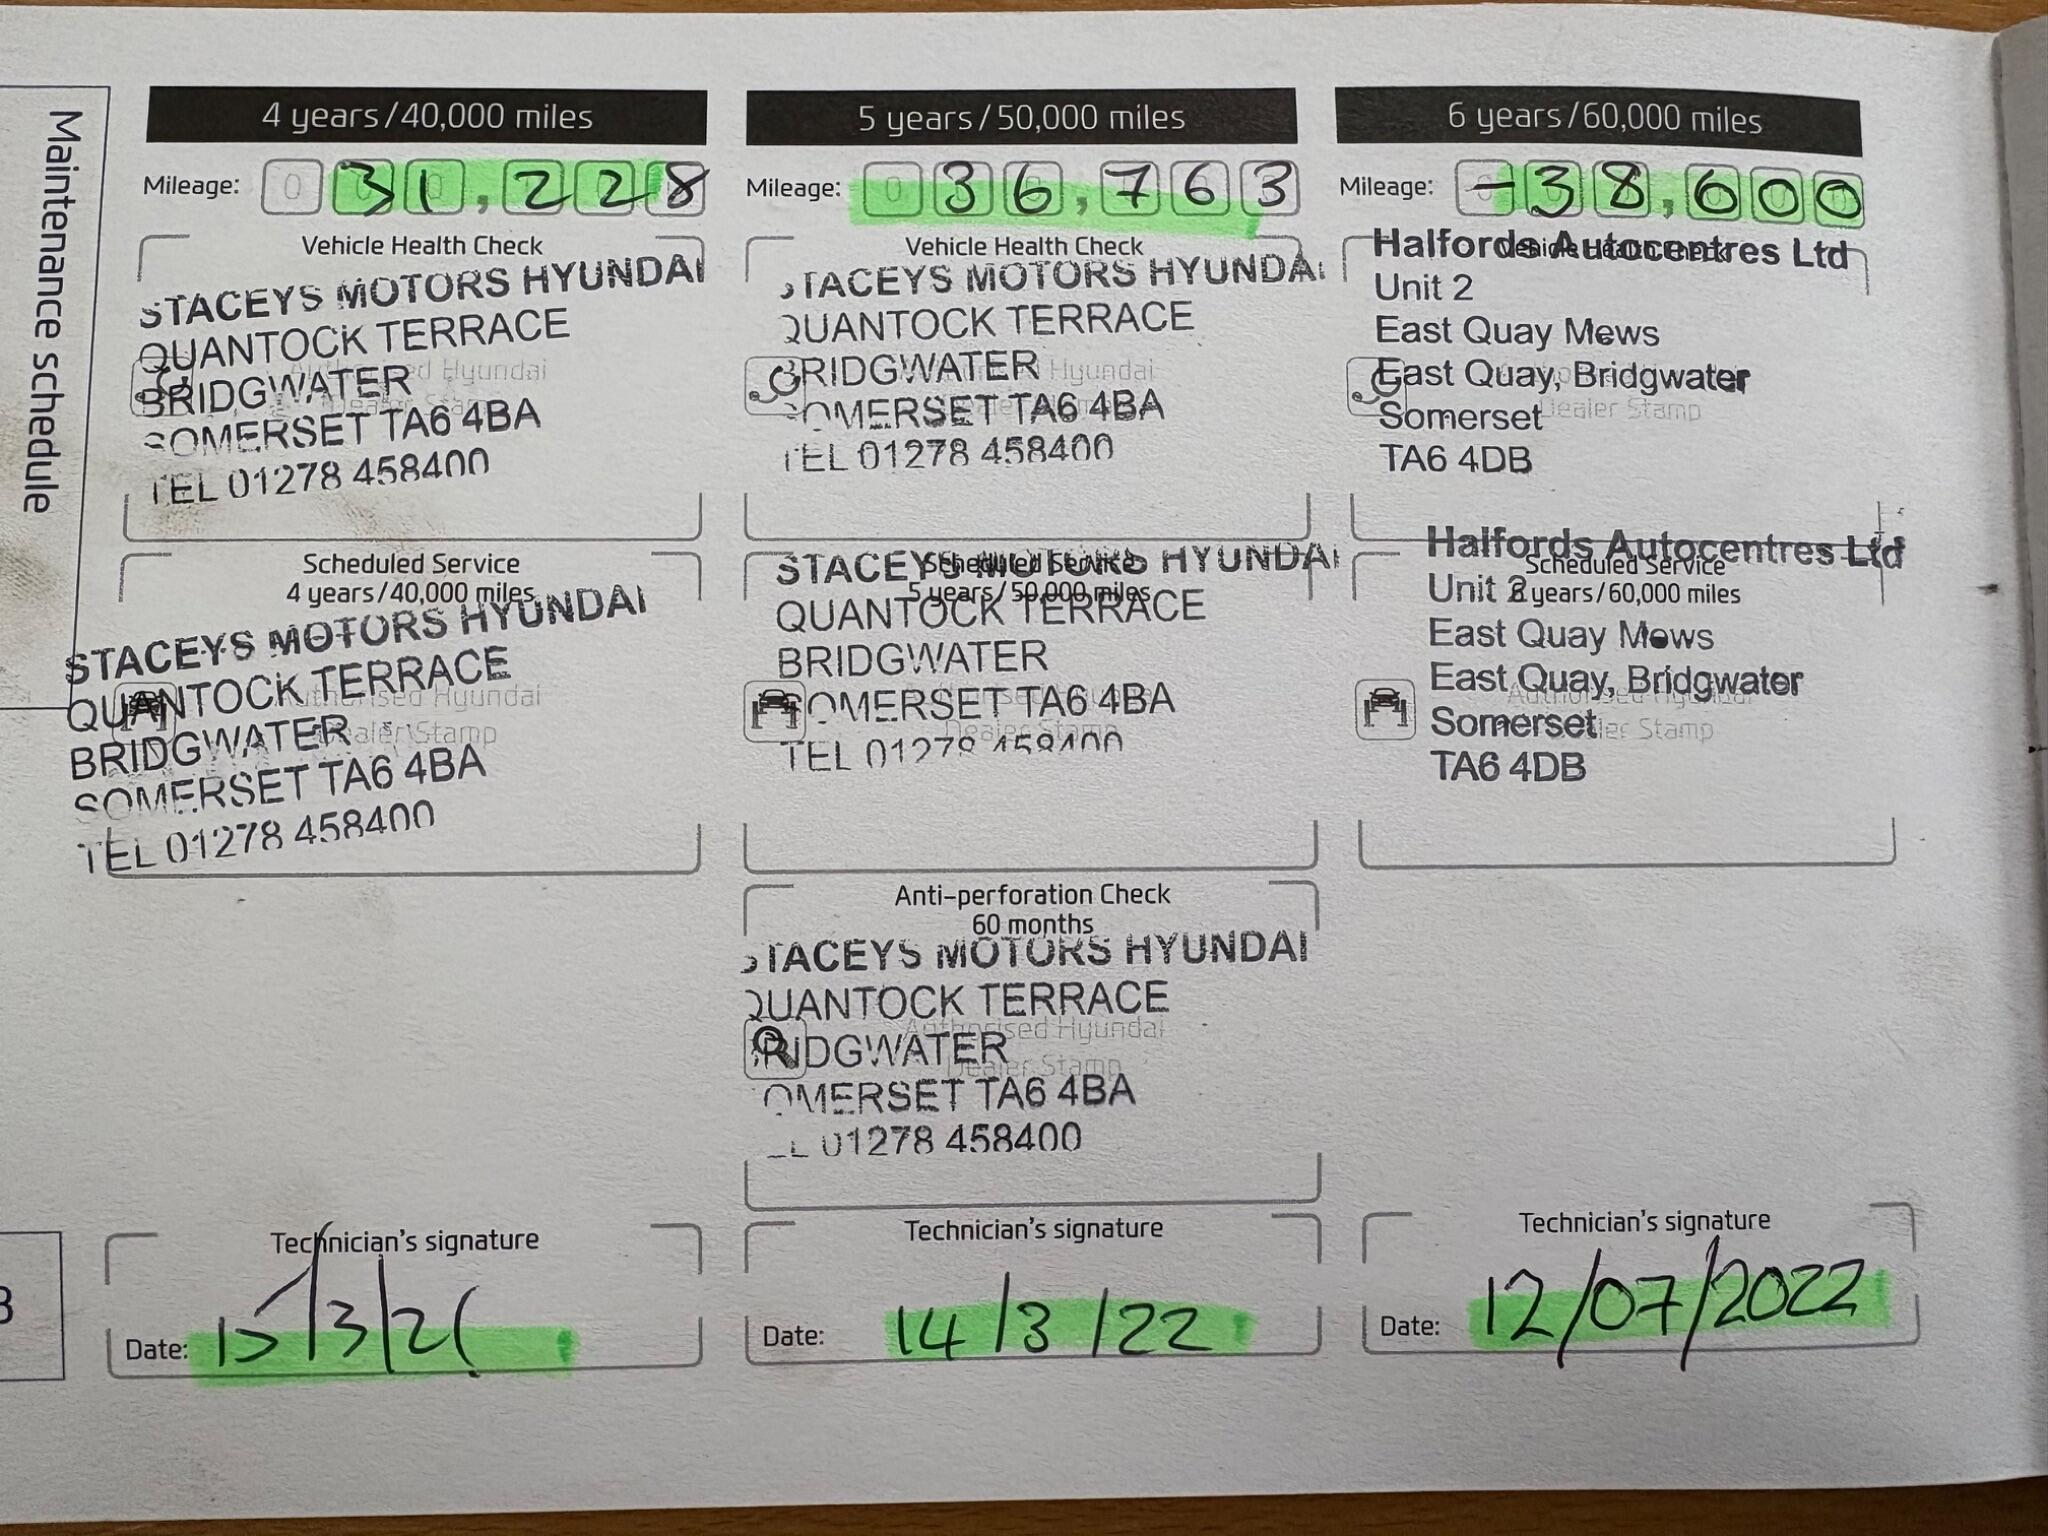 Maintenance schedule
4 years/40,000 miles
Mileage: 0 31,228
Vehicle Health Check
STACEYS MOTORS HYUNDAI
QUANTOCK TERRACE
BRIDGWATER
Authorised Hyundai
Dealer Stamp
SOMERSET TA6 4BA
TEL 01278 458400
Scheduled Service
4 years/40,000 miles
STACEYS MOTORS HYUNDAI
QUANTOCK TERRACE
Authorised Hyundai
Dealer Stamp
BRIDGWATER
SOMERSET TA6 4BA
TEL 01278 458400
Technician's signature
Date: 15/3/21
5 years/50,000 miles
Mileage: 0 36,763
Vehicle Health Check
STACEYS MOTORS HYUNDAI
QUANTOCK TERRACE
BRIDGWATER
Authorised Hyundai
Dealer Stamp
SOMERSET TA6 4BA
TEL 01278 458400
Scheduled Service
5 years/50,000 miles
STACEYS MOTORS HYUNDAI
QUANTOCK TERRACE
BRIDGWATER
SOMERSET TA6 4BA
Dealer Stamp
TEL 01278 458400
Anti-perforation Check
60 months
STACEYS MOTORS HYUNDAI
QUANTOCK TERRACE
Authorised Hyundai
BRIDGWATER
Dealer Stamp
SOMERSET TA6 4BA
TEL 01278 458400
Technician's signature
Date: 14/3/22
6 years/60,000 miles
Mileage: -38,600
Vehicle Health Check
Halfords Autocentres Ltd
Unit 2
East Quay Mews
East Quay, Bridgwater
Dealer Stamp
Somerset
TA6 4DB
Scheduled Service
6 years/60,000 miles
Halfords Autocentres Ltd
Unit 2
East Quay Mews
East Quay, Bridgwater
Authorised Hyundai
Dealer Stamp
Somerset
TA6 4DB
Technician's signature
Date: 12/07/2022